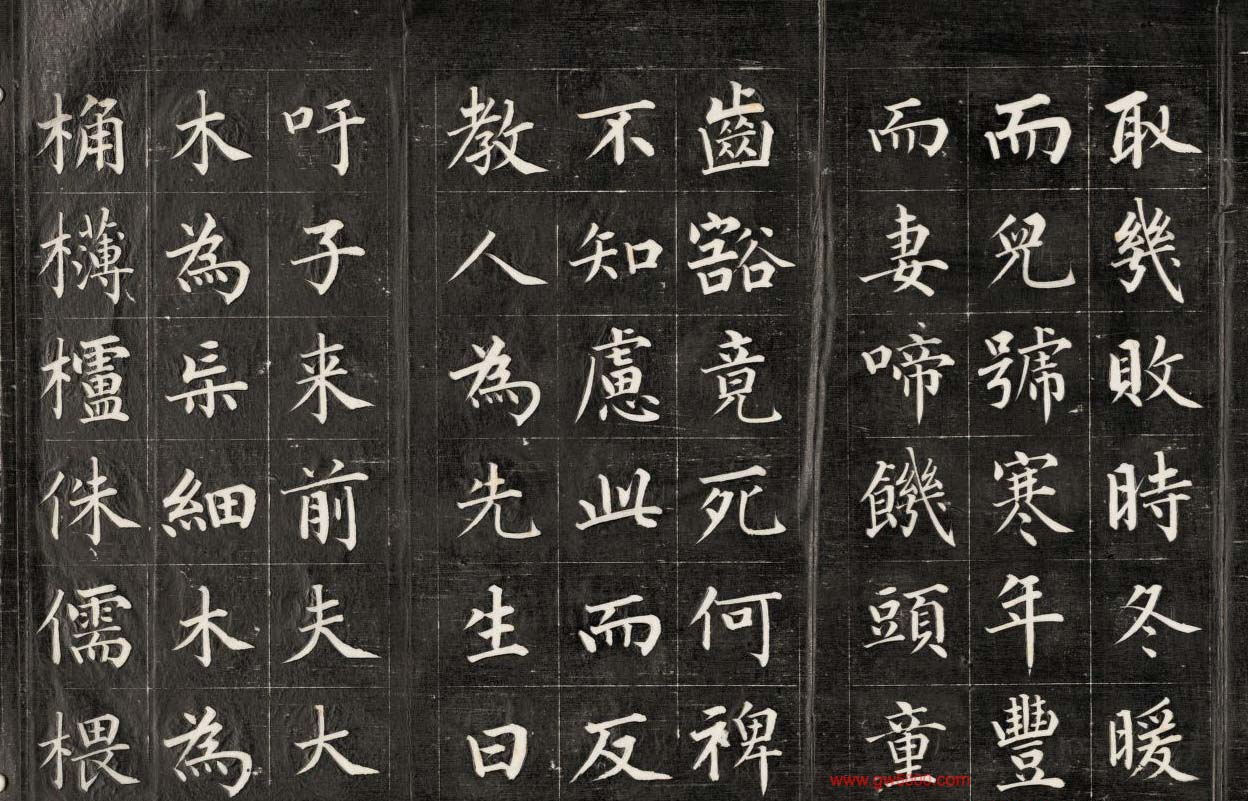 取幾敗時冬暖
而兒號寒年豐
而妻啼饑頭童
齒豁竟死何裨
不知慮此而反
教人為先生曰
吁子来前夫大
木為杗細木為
桷欂櫨侏儒椳